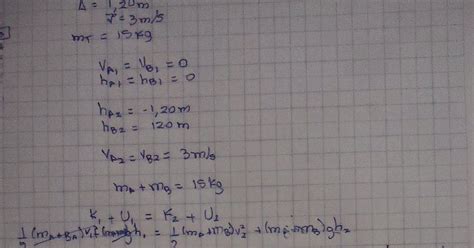 Δ = 1,20m
v = 3m/s
m_T = 15kg
V_A1 = V_B1 = 0
h_A1 = h_B1 = 0
h_A2 = -1,20m
h_B2 = 120m
V_A2 = V_B2 = 3m/s
m_A + m_B = 15kg
K_1 + U_1 = K_2 + U_2
½(m_A + B_A)V_1² h_1 = ½(m_A + m_B)V_2² + (m_A + m_B)gh_2